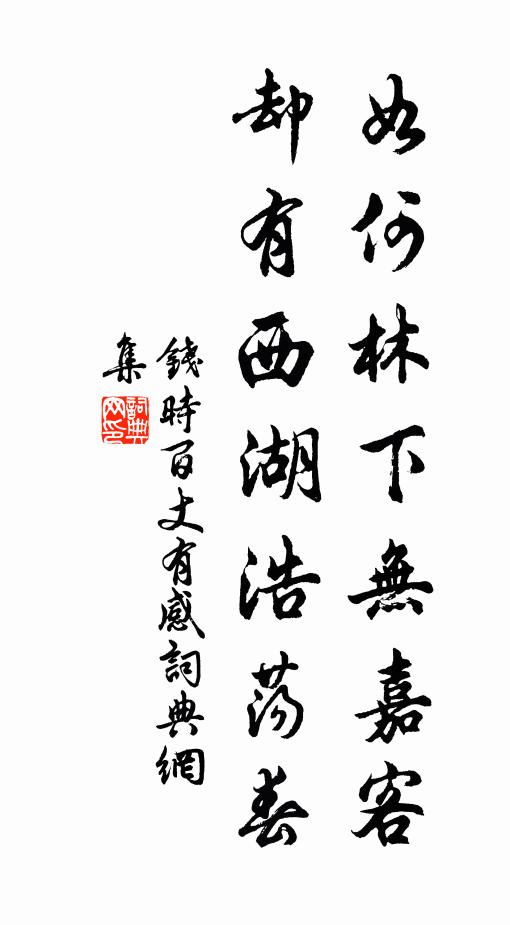 如何林下無嘉客
却有西湖浩荡春
錢時百丈有感詞典網
集
詞典
网印